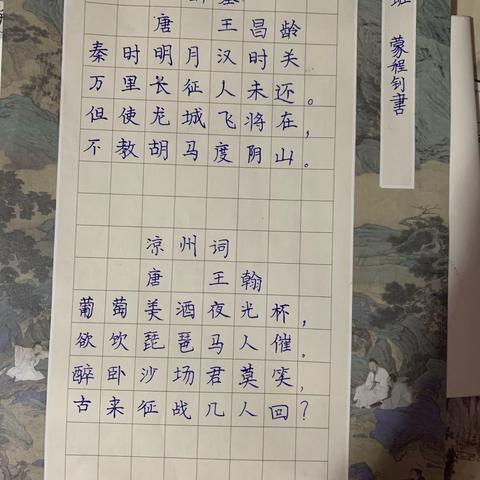 唐 王昌龄
秦时明月汉时关
万里长征人未还。
但使龙城飞将在,
不教胡马度阴山。
凉州词
唐 王翰
葡萄美酒夜光杯,
欲饮琵琶马人催。
醉卧沙场君莫笑,
古来征战几人回?
班 蒙程钊書